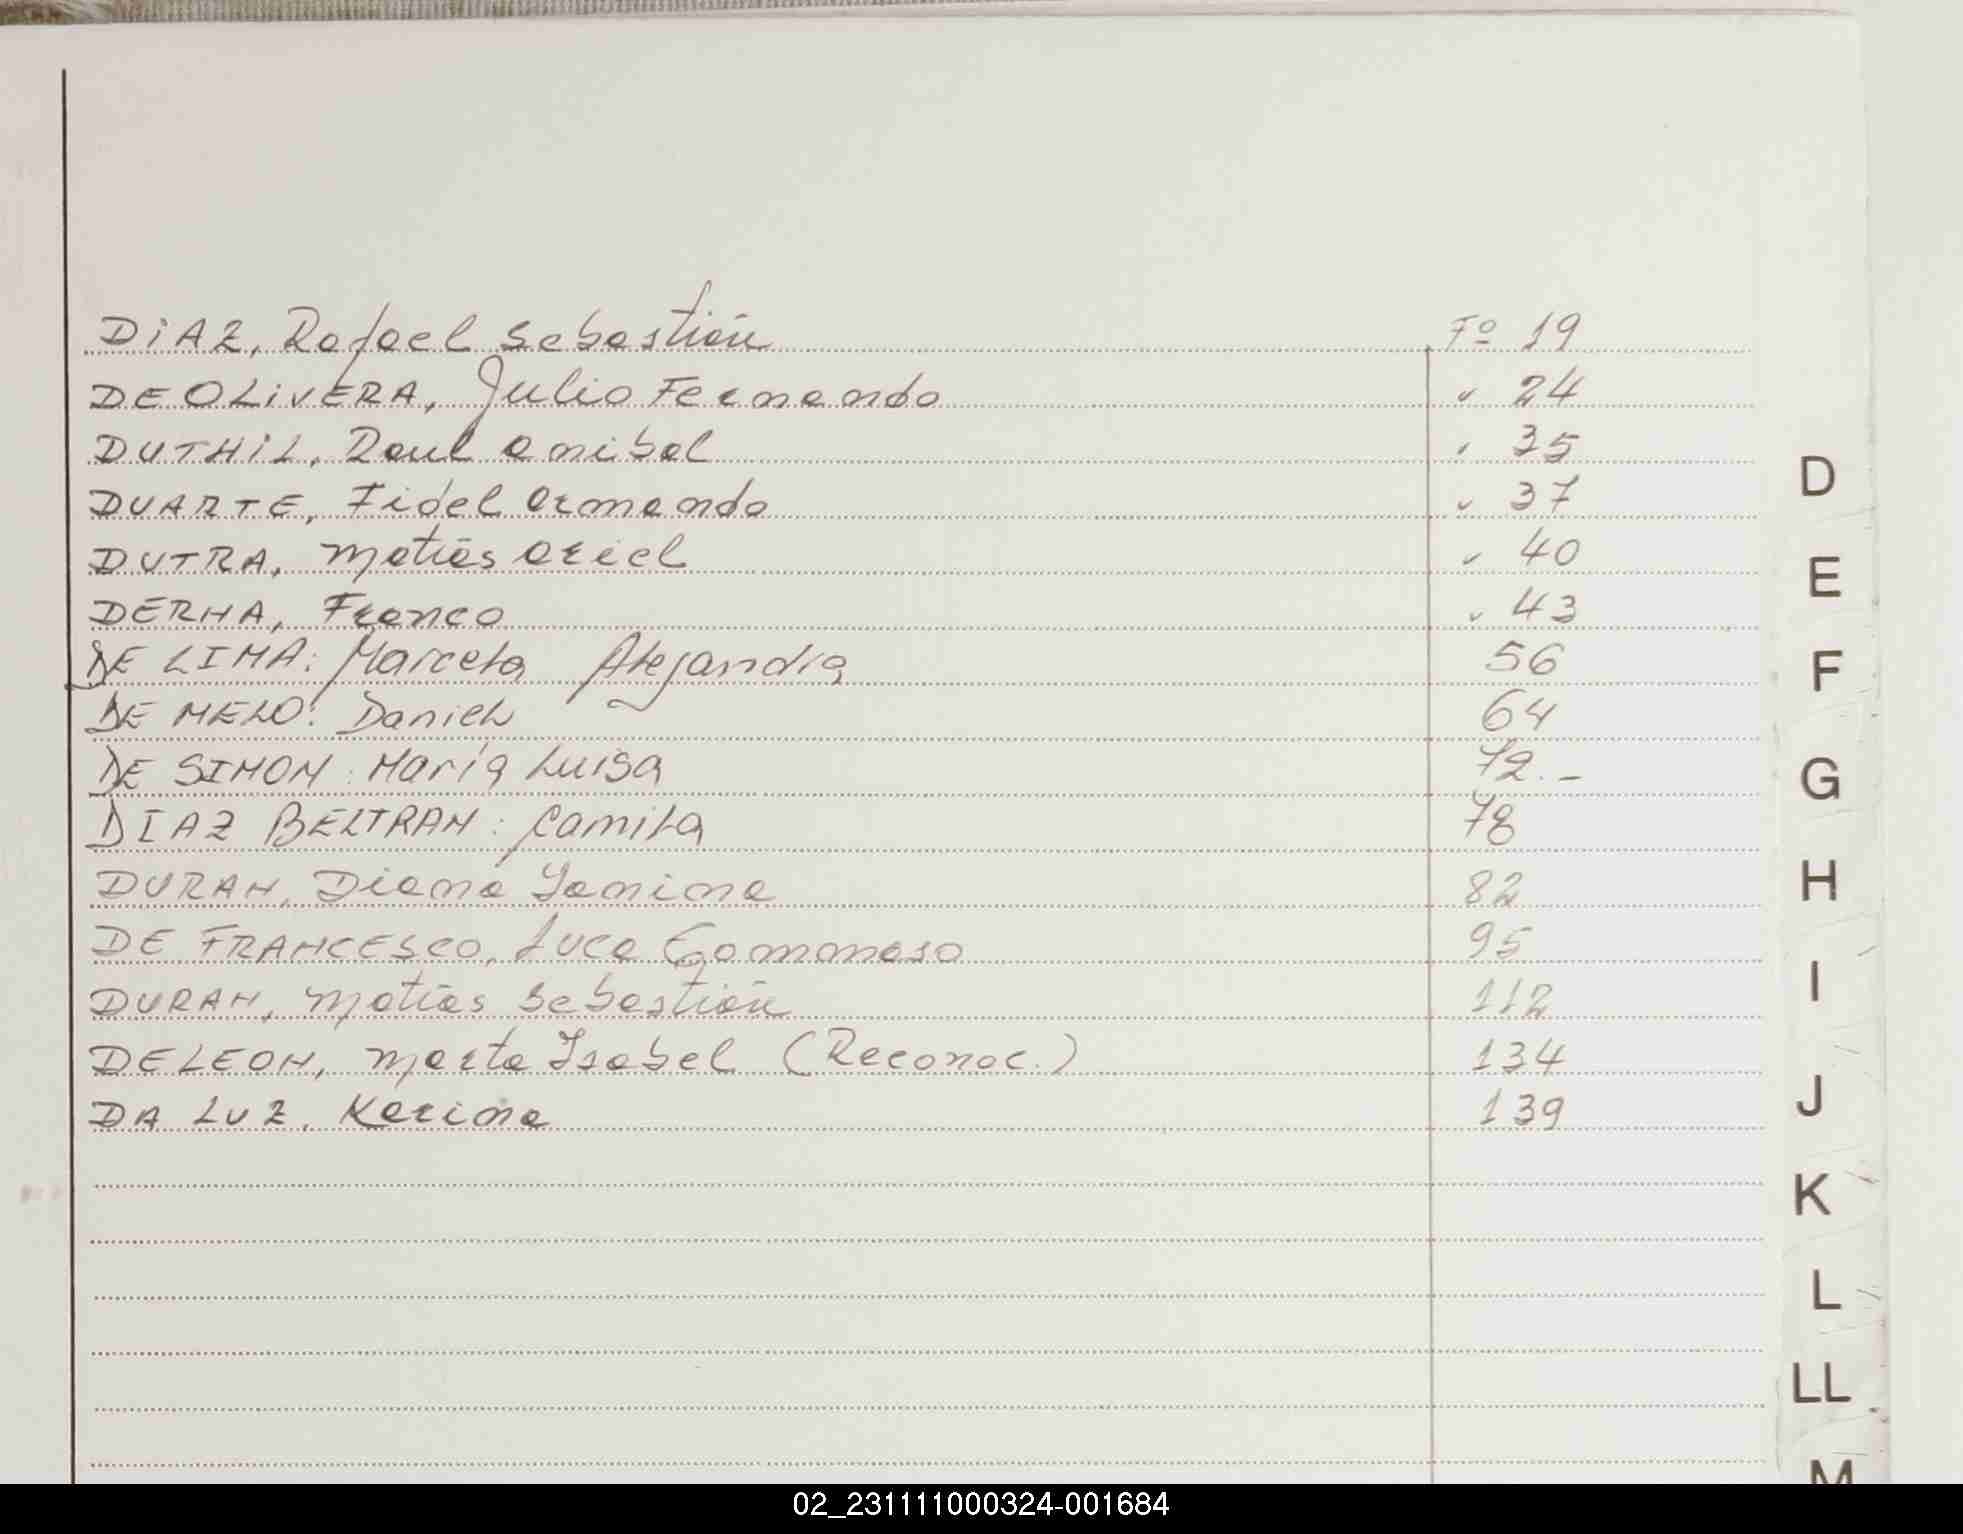 DiAZ, Rafael Sebastián Fº 19
DE OLiVERA, Julio Fernando " 24
DUTHiL, Raul Anibal " 35
DUARTE, Fidel Armando " 37
DUTRA, Matias Ariel " 40
DERHA, Franco " 43
DE LIMA: Marcela Alejandra 56
DE MELO: Daniel 64
DE SIMON: María Luisa 72.-
DIAZ BELTRAN: Camila 78
DURAN, Diana Yanina 82
DE FRANCESCO, Luca 95
DURAN, Matias Sebastián 112
DELEON, Marta Isabel (Reconoc.) 134
DA LUZ, Karina 139
D
E
F
G
H
I
J
K
L
LL
M
02_231111000324-001684